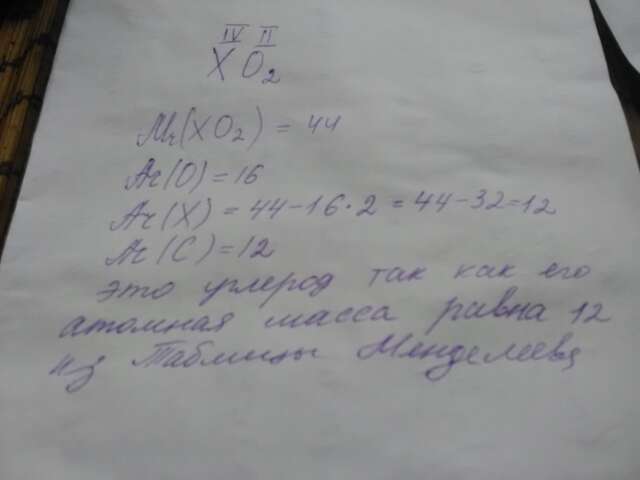 IV II
XO₂
Mr(XO₂) = 44
Ar(O) = 16
Ar(X) = 44-16·2 = 44-32=12
Ar(C) = 12
это углерод так как его
атомная масса равна 12
из Таблицы Менделеева